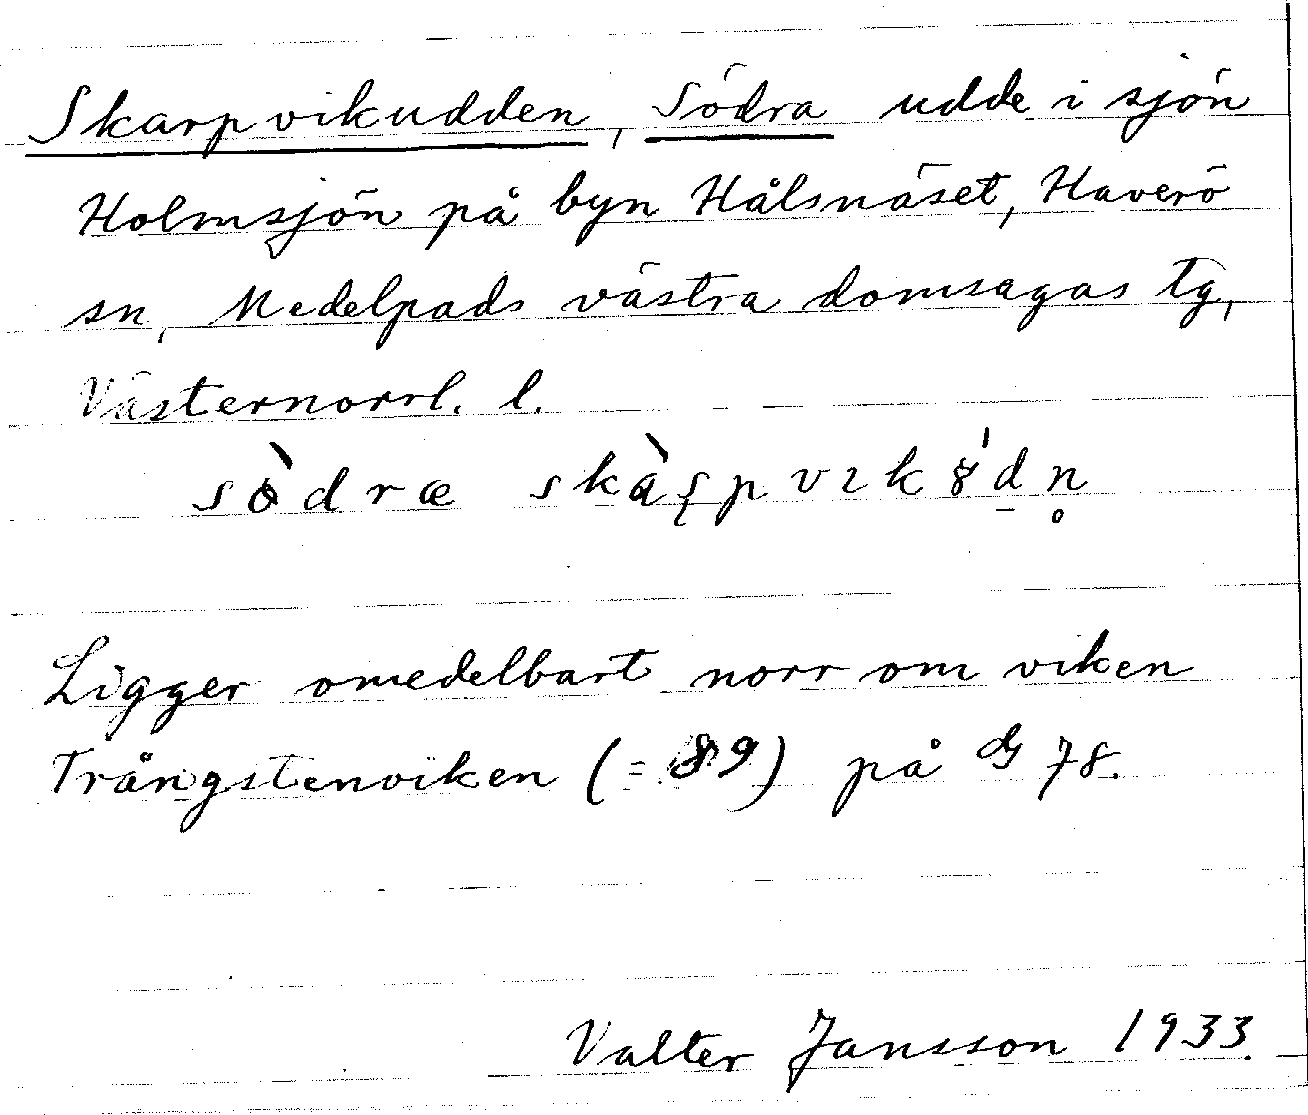 Skarpvikudden, Södra udde i sjön
Holmsjön på byn Hålsnäset, Haverö
sn, Medelpads västra domsagas tg,
Västernorrl. l.
Ligger omedelbart norr om viken
Trångstenviken (= 89) på G 78.
Valter Jansson 1933.